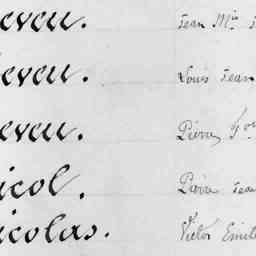 eveu. Jean Mie
eveu. Louis Jean
eveu. Pierre
icol. Pierre Jean
icolas. Victor Emile